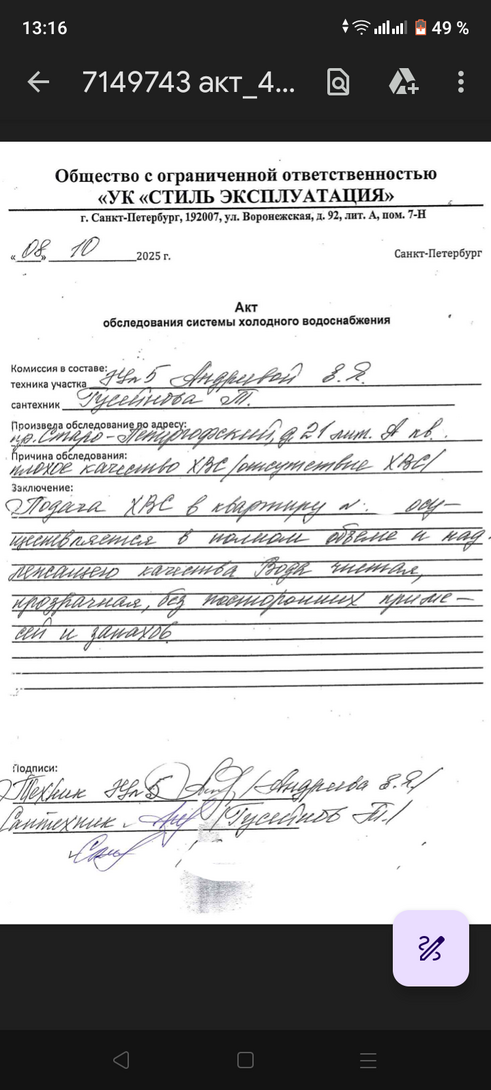 13:16
49 %
7149743 акт_4...
Общество с ограниченной ответственностью
«УК «СТИЛЬ ЭКСПЛУАТАЦИЯ»
г. Санкт-Петербург, 192007, ул. Воронежская, д. 92, лит. А, пом. 7-Н
«08» 10 2025 г.
Санкт-Петербург
Акт
обследования системы холодного водоснабжения
Комиссия в составе:
техника участка Андреевой З.Я.
сантехник Гусейнова Т.
Произвела обследование по адресу:
пр. Старо-Петергофский, д 21 лит. А кв.
Причина обследования:
плохое качество ХВС /отсутствие ХВС/
Заключение:
Подача ХВС в квартиру осу-
ществляется в полном объеме и над-
лежащего качества Вода чистая,
прозрачная, без посторонних приме-
сей и запахов
Подписи:
Техник /Андреева З.Я/
Сантехник /Гусейнов Т./